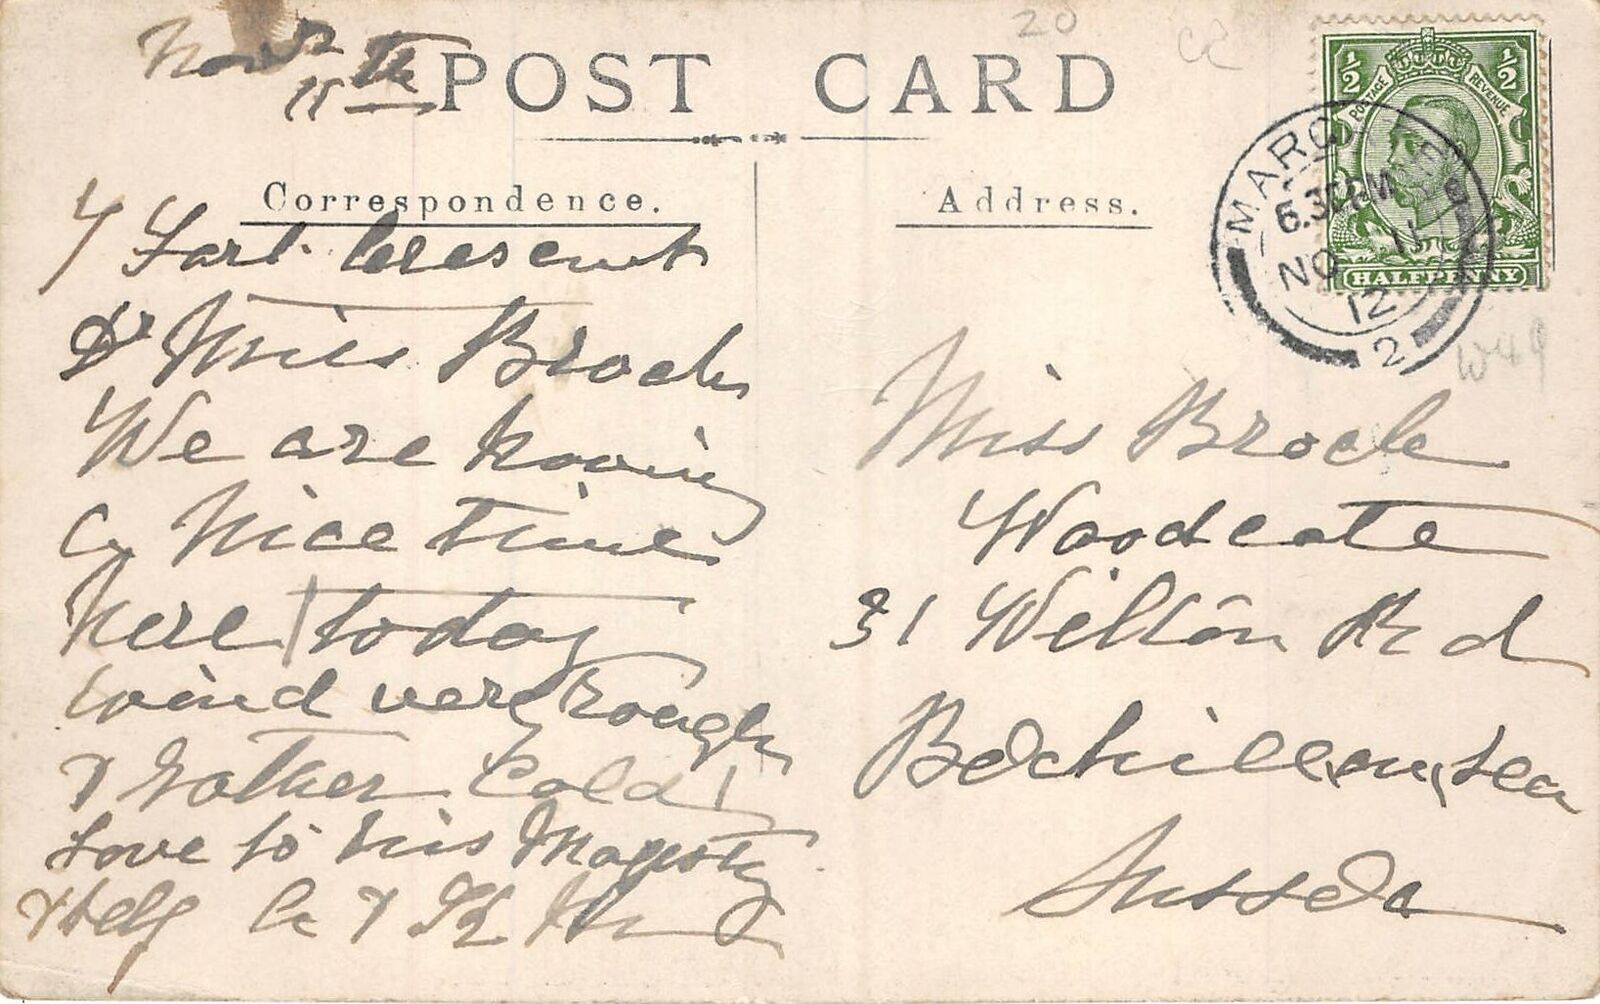 Novr
11th
POST CARD
20
Correspondence.
Address.
7 Fort Crescent
Dr Miss Brock
We are having
a Nice time
here today
wind very rough
& rather Cold
Love to his Majesty
& Self
½ ½
POSTAGE REVENUE
HALFPENNY
MARGATE
6.30PM
NO 11
12
2
W49
Miss Brock
Woodcote
31 Wilton Rd
Bexhill on Sea
Sussex